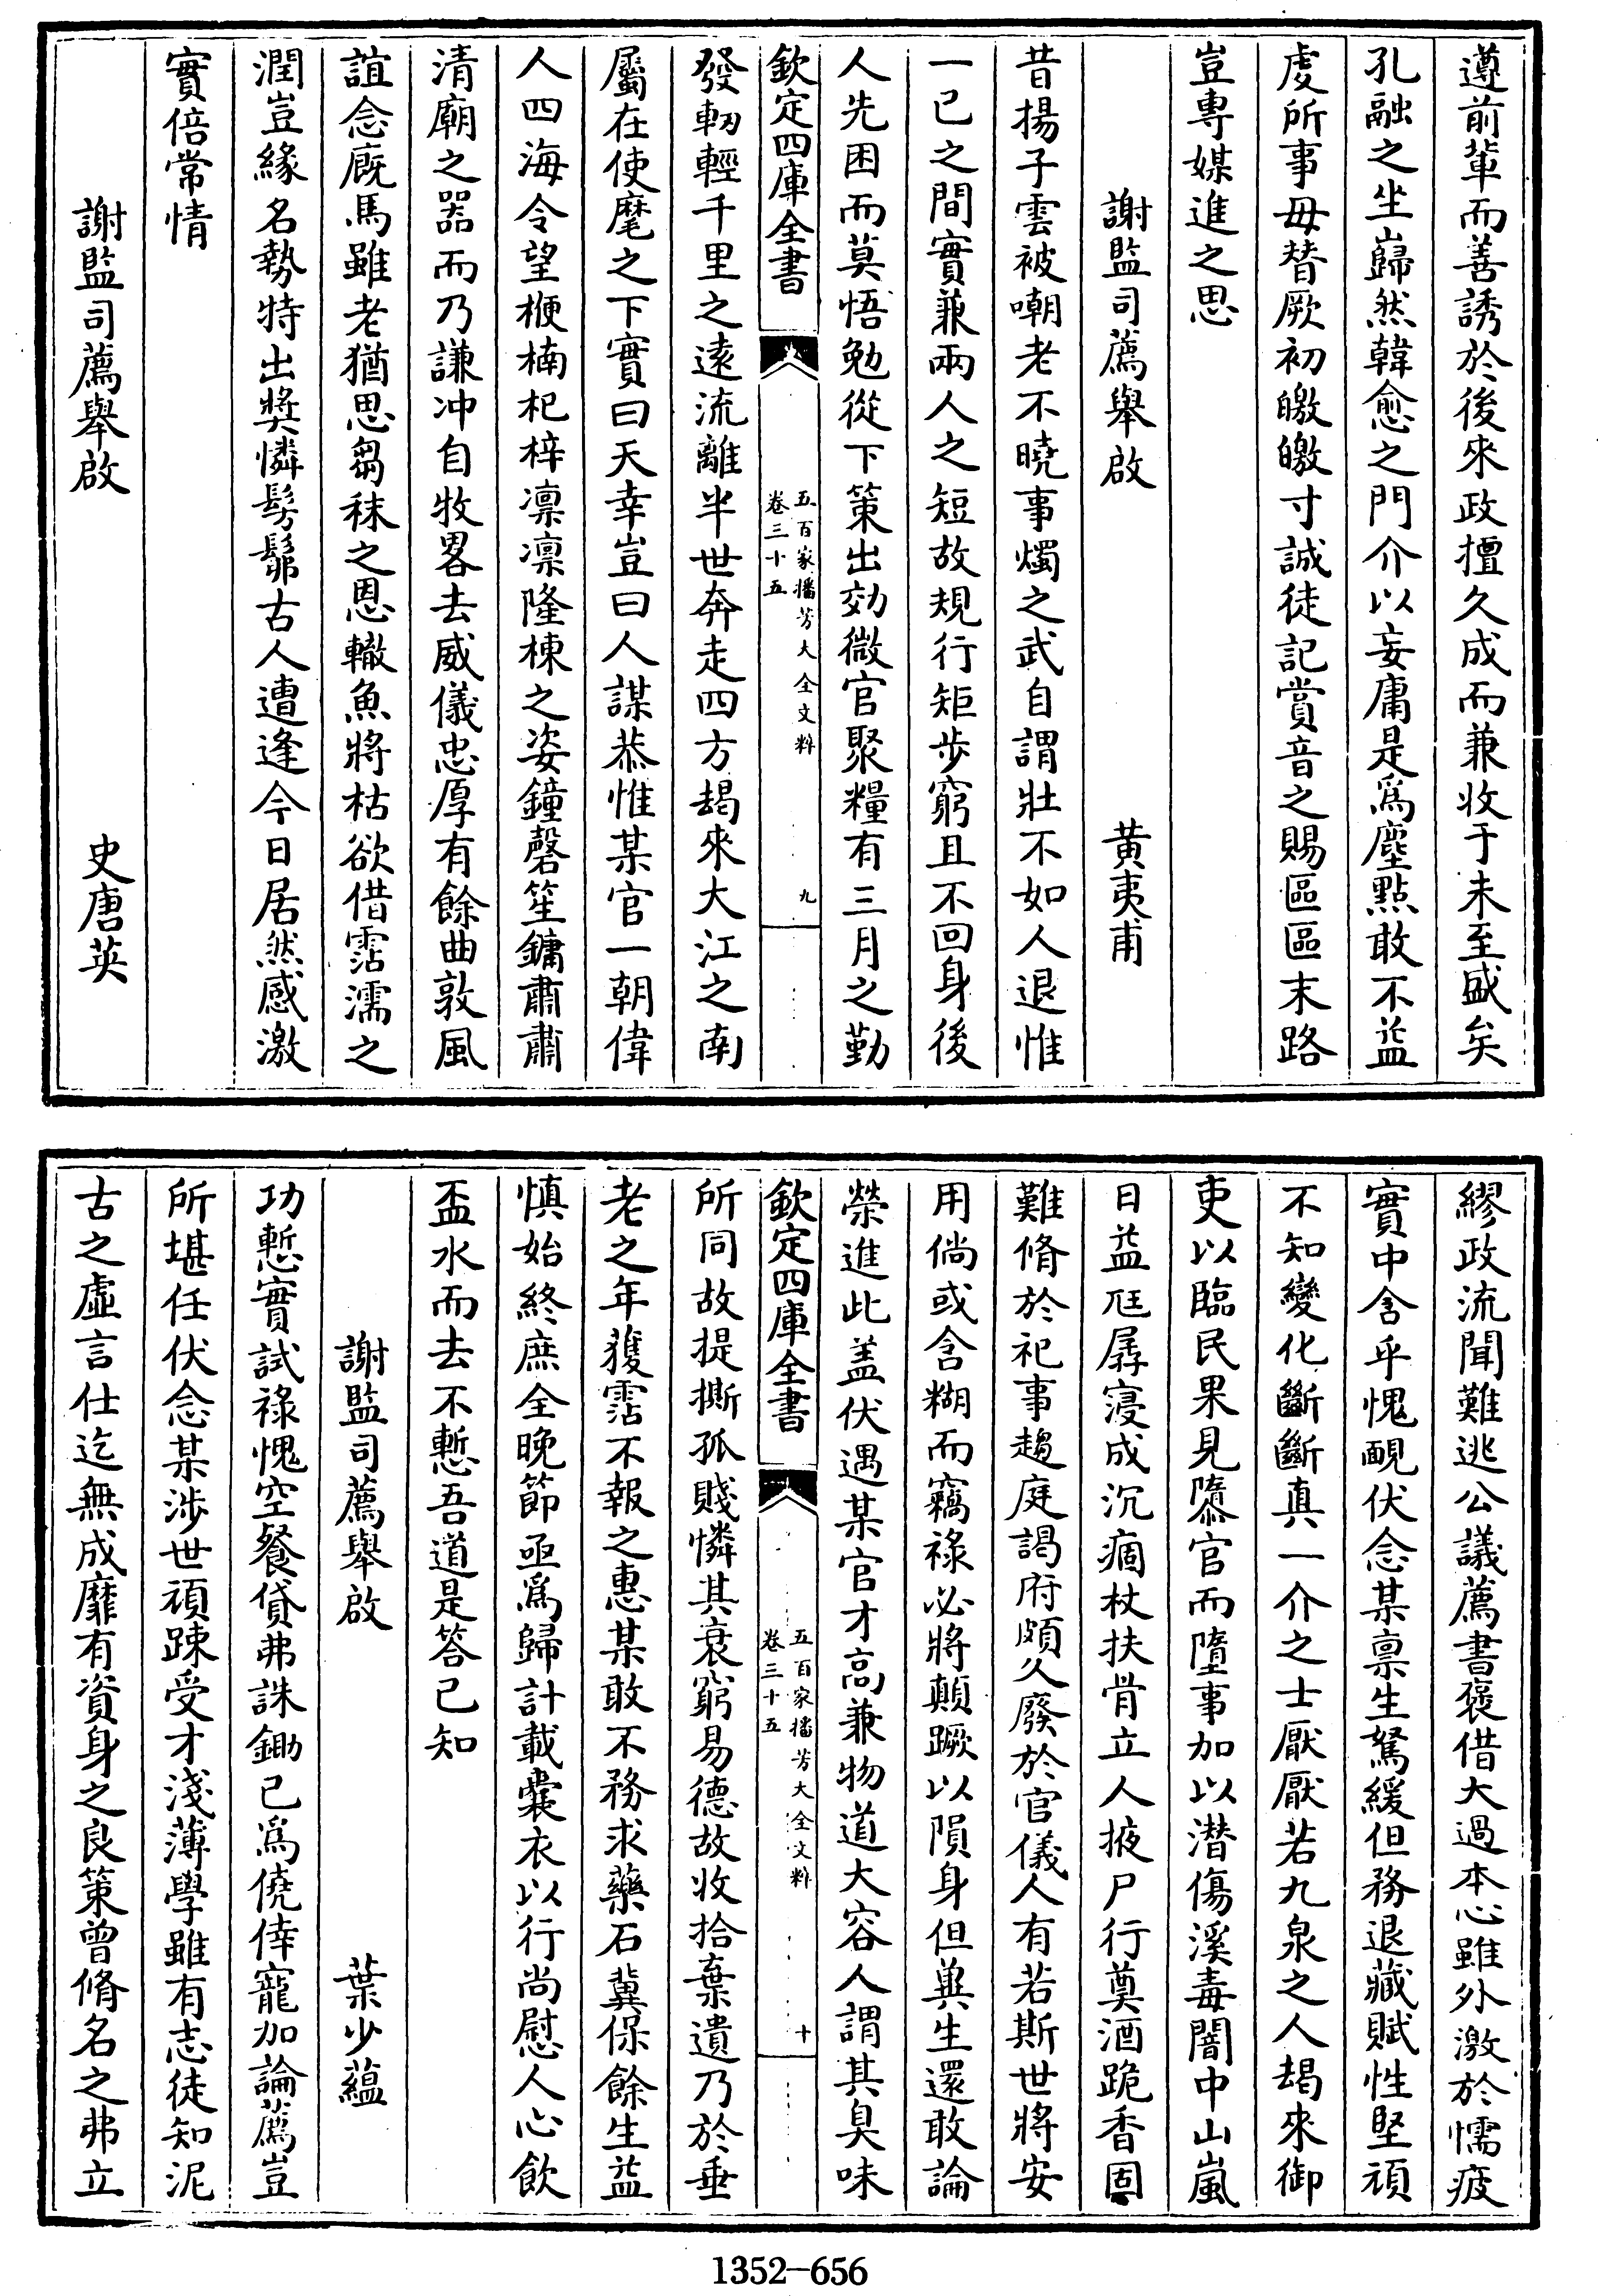 遵前輩而善誘於後來政擅久成而兼收于未至盛矣
孔融之坐巋然韓愈之門介以妄庸是爲塵點敢不益
虔所事毋替厥初皦皦寸誠徒記賞音之賜區區末路
豈専媒進之思
謝監司薦舉啟 黄夷甫
昔揚子雲被嘲老不曉事燭之武自謂壯不如人退惟
一已之間實兼兩人之短故規行矩歩窮且不回身後
人先困而莫悟勉從下策出効微官聚糧有三月之勤
欽定四庫全書
五百家播芳大全文粹
卷三十五
九
發軔輕千里之逺流離半世奔走四方朅來大江之南
屬在使麾之下實曰天幸豈曰人謀恭惟某官一朝偉
人四海令望楩楠杞梓凛凛隆棟之姿鐘磬笙鏞肅肅
清廟之器而乃謙冲自牧畧去威儀忠厚有餘曲敦風
誼念廐馬雖老猶思芻秣之恩轍魚將枯欲借霑濡之
潤豈緣名勢特出奬憐髣髴古人遭逢今日居然感激
實倍常情
謝監司薦舉啟 史唐英
繆政流聞難逃公議薦書褒借大過本心雖外激於懦疲
實中含乎愧靦伏念某禀生駑緩但務退藏賦性堅頑
不知變化斷斷真一介之士厭厭若九泉之人朅來御
吏以臨民果見隳官而墮事加以潜傷溪毒闇中山嵐
日益尫孱寖成沉痼杖扶骨立人掖尸行奠酒跪香固
難脩於祀事趨庭謁府頗久廢於官儀人有若斯世將安
用倘或含糊而竊祿必將顛蹶以隕身但兾生還敢論
榮進此盖伏遇某官才高兼物道大容人謂其臭味
欽定四庫全書
五百家播芳大全文粹
卷三十五
十
所同故提撕孤賤憐其衰窮易德故收拾棄遺乃於垂
老之年獲霑不報之惠某敢不務求藥石冀保餘生益
慎始終庶全晚節亟爲歸計載褰衣以行尚慰人心飲
盃水而去不慙吾道是答已知
謝監司薦舉啟 葉少蘊
功慙實試祿愧空餐貸弗誅鋤已爲僥倖寵加論薦豈
所堪任伏念某渉世頑踈受才淺薄學雖有志徒知泥
古之虛言仕迄無成靡有資身之良策曾脩名之弗立
1352-656